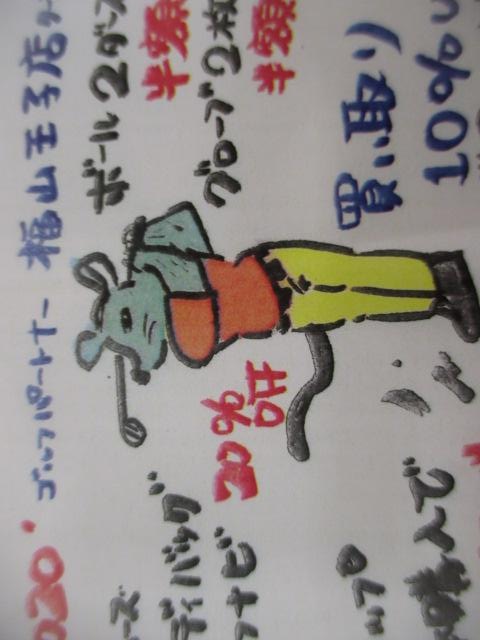 020 ゴルフパートナー 福山王子店
ーズ ボール2ダース
ディバッグ 半額
ナビ 20%引 グローブ2枚
半額
買い取り
10%